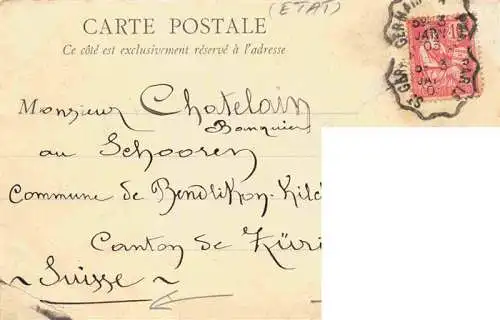 (ETAT)
CARTE POSTALE
Ce côté est exclusivement réservé à l'adresse
Monsieur Chatelain
Banquier
au Schooren
Commune de Bendlikon-Kilc
Canton de Züri
~ Suisse ~
ST GERMAIN
3
JANV
03